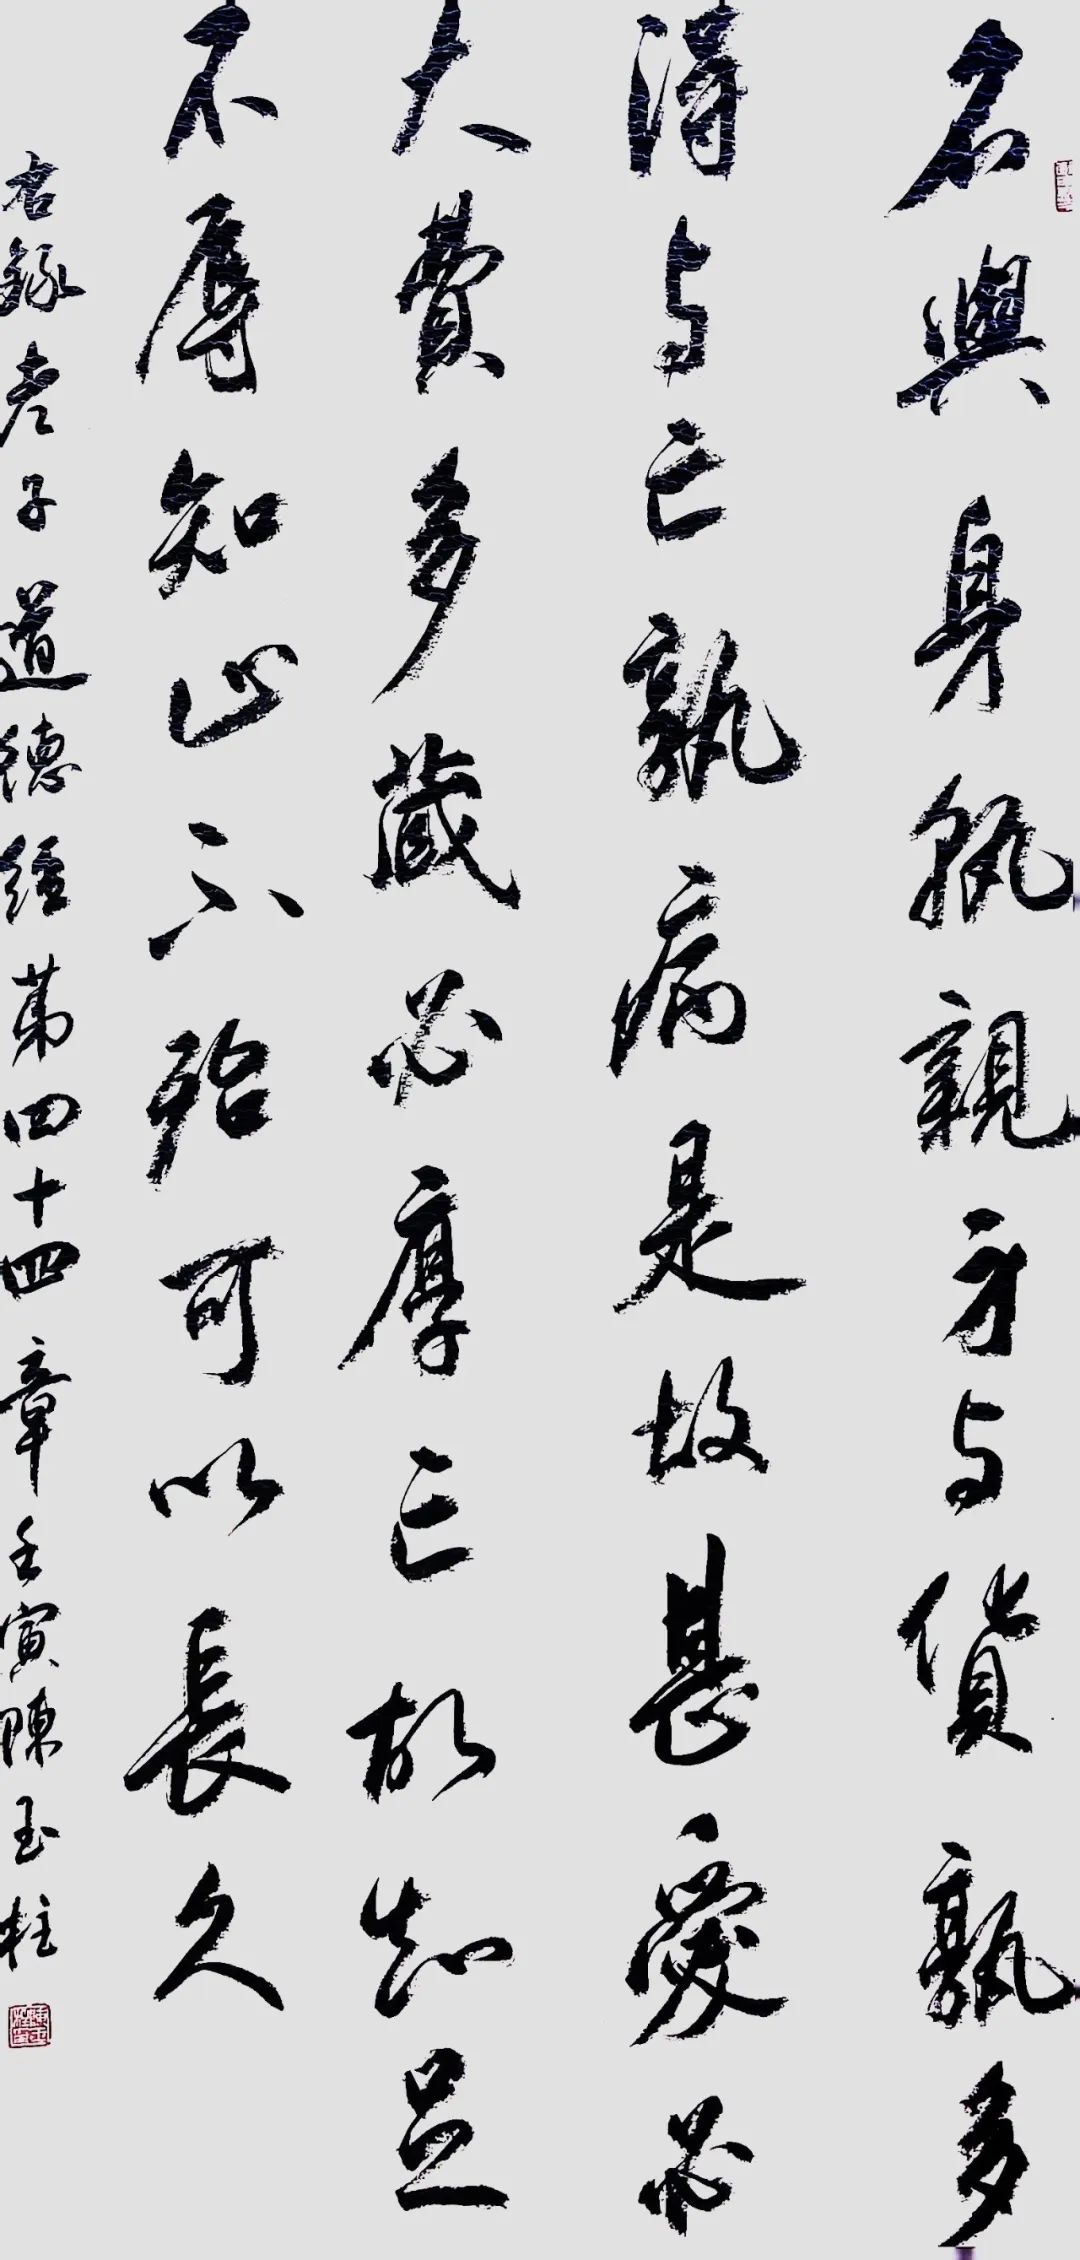 名與身孰親身与貨孰多
得与亡孰病是故甚愛必
大費多藏必厚亡故知足
不辱知止不殆可以長久
右録老子道德經第四十四章壬寅陳玉柱